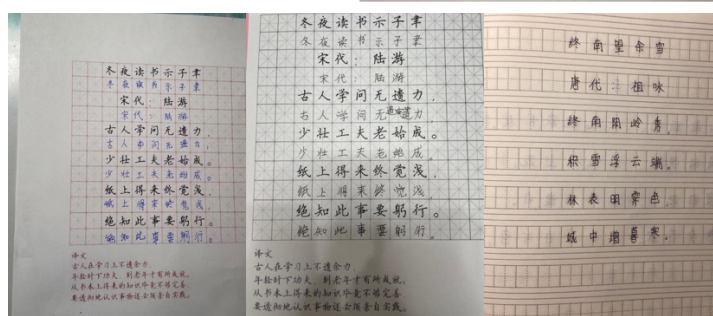 冬夜读书示子聿
冬夜读书示子聿
宋代：陆游
宋代：陆游
古人学问无遗力，
古人学问无遗力，
少壮工夫老始成。
少壮工夫老始成。
纸上得来终觉浅，
纸上得来终觉浅
绝知此事要躬行。
绝知此事要躬行。
译文
古人在学习上不遗余力，
年轻时下功夫，到老年才有所成就。
从书本上得来的知识毕竟不够完善，
要透彻地认识事物还必须亲自实践。
冬夜读书示子聿
冬夜读书示子聿
宋代：陆游
宋代：陆游
古人学问无遗力，
古人学问无遗力
少壮工夫老始成。
少壮工夫老始成。
纸上得来终觉浅，
纸上得来终觉浅
绝知此事要躬行。
绝知此事要躬行。
译文
古人在学习上不遗余力，
年轻时下功夫，到老年才有所成就。
从书本上得来的知识毕竟不够完善，
要透彻地认识事物还必须亲自实践。
终南望余雪
唐代：祖咏
终南阴岭秀，
积雪浮云端。
林表明霁色，
城中增暮寒。